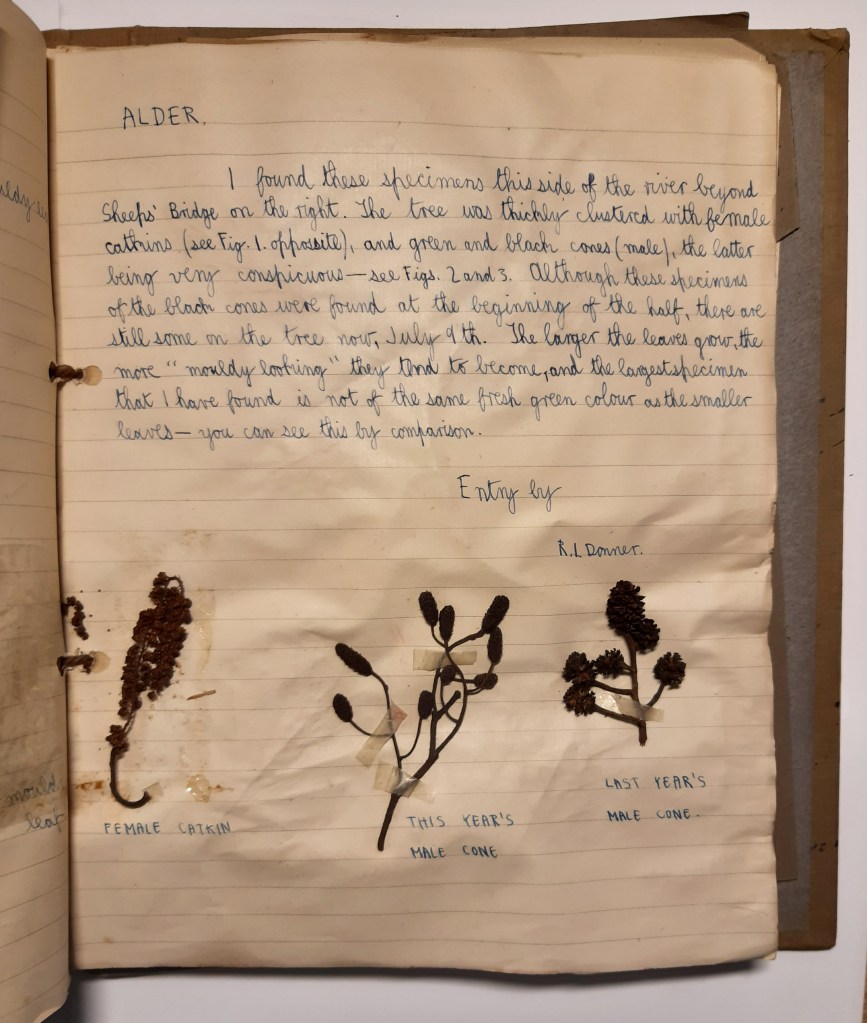 ALDER.
I found these specimens this side of the river beyond
Sheeps' Bridge on the right. The tree was thickly clustered with female
catkins (see Fig. 1. oppossite), and green and black cones (male), the latter
being very conspicuous — see Figs. 2 and 3. Although these specimens
of the black cones were found at the beginning of the half, there are
still some on the tree now, July 9th. The larger the leaves grow, the
more "mouldy looking" they tend to become, and the largest specimen
that I have found is not of the same fresh green colour as the smaller
leaves — you can see this by comparison.
Entry by
R.L. Donner.
FEMALE CATKIN
THIS YEAR'S
MALE CONE
LAST YEAR'S
MALE CONE.
mould
leaf